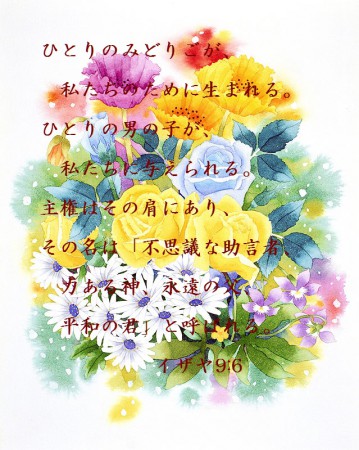 ひとりのみどりごが、
私たちのために生まれる。
ひとりの男の子が、
私たちに与えられる。
主権はその肩にあり、
その名は「不思議な助言者、
力ある神、永遠の父、
平和の君」と呼ばれる。
イザヤ9:6